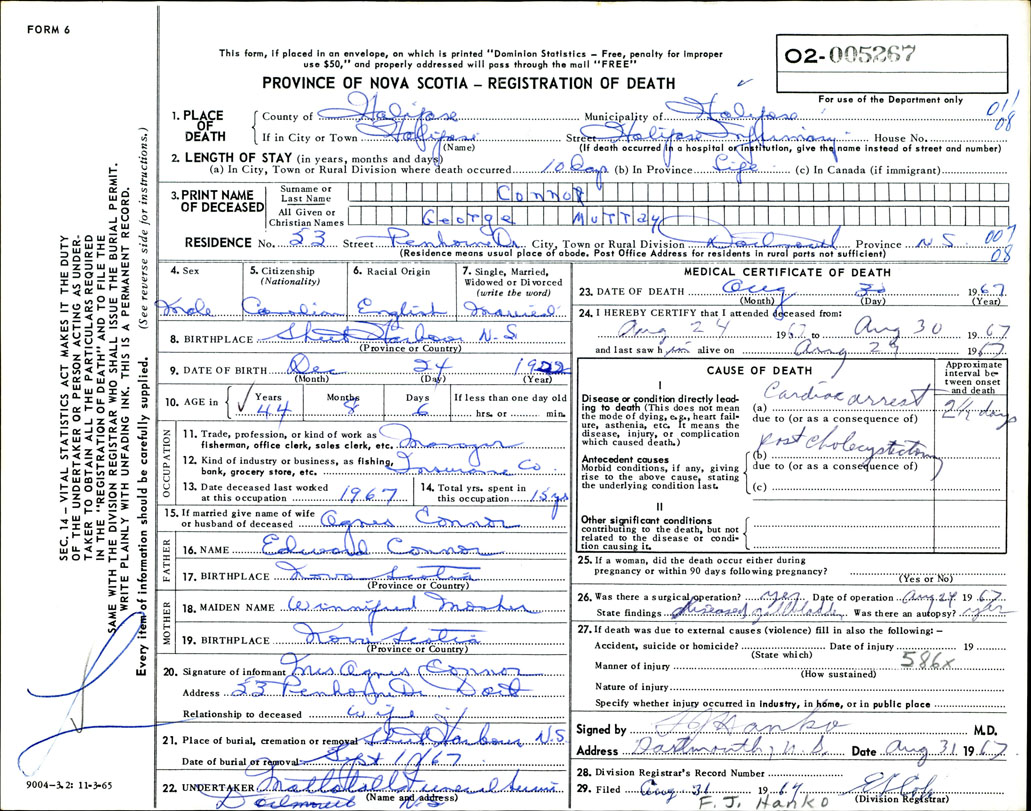 FORM 6
This form, if placed in an envelope, on which is printed "Dominion Statistics – Free, penalty for improper
use $50," and properly addressed will pass through the mail "FREE"
O2-005267
PROVINCE OF NOVA SCOTIA – REGISTRATION OF DEATH
For use of the Department only
011
08
1. PLACE OF DEATH
County of Halifax Municipality of Halifax
If in City or Town Halifax Street Halifax Infirmary House No.
(Name) (If death occurred in a hospital or institution, give the name instead of street and number)
2. LENGTH OF STAY (in years, months and days)
(a) In City, Town or Rural Division where death occurred 10 days (b) In Province Life (c) In Canada (if immigrant)
3. PRINT NAME OF DECEASED
Surname or Last Name Connor
All Given or Christian Names George Murray
RESIDENCE No. 53 Street Penhorne Dr City, Town or Rural Division Dartmouth Province N S 007
(Residence means usual place of abode. Post Office Address for residents in rural parts not sufficient) 08
4. Sex Male
5. Citizenship (Nationality) Canadian
6. Racial Origin English
7. Single, Married, Widowed or Divorced (write the word) Married
8. BIRTHPLACE Sheet Harbour N-S
(Province or Country)
9. DATE OF BIRTH Dec 24 1922
(Month) (Day) (Year)
10. AGE in Years 44 Months 8 Days 6 If less than one day old hrs. or min.
OCCUPATION
11. Trade, profession, or kind of work as fisherman, office clerk, sales clerk, etc. Manager
12. Kind of industry or business, as fishing, bank, grocery store, etc. Insurance Co
13. Date deceased last worked at this occupation 1967
14. Total yrs. spent in this occupation 15 yrs
15. If married give name of wife or husband of deceased Agnes Connor
FATHER
16. NAME Edward Connor
17. BIRTHPLACE Nova Scotia
(Province or Country)
MOTHER
18. MAIDEN NAME Winnifred Mosher
19. BIRTHPLACE Nova Scotia
(Province or Country)
20. Signature of informant Mrs Agnes Connor
Address 53 Penhorne Dr Dart
Relationship to deceased wife
21. Place of burial, cremation or removal Sheet Harbour N.S.
Date of burial or removal Sept 1/67
22. UNDERTAKER Funeral
(Name and address)
Dartmouth
MEDICAL CERTIFICATE OF DEATH
23. DATE OF DEATH Aug 30 1967
(Month) (Day) (Year)
24. I HEREBY CERTIFY that I attended deceased from:
Aug 24 1967 to Aug 30 1967
and last saw him alive on Aug 29 1967
CAUSE OF DEATH
Approximate interval between onset and death
I
Disease or condition directly leading to death (This does not mean the mode of dying, e.g., heart failure, asthenia, etc. It means the disease, injury, or complication which caused death.)
(a) Cardiac arrest 2½ days
due to (or as a consequence of)
Antecedent causes
Morbid conditions, if any, giving rise to the above cause, stating the underlying condition last.
(b) Post Cholecystectomy
due to (or as a consequence of)
(c)
II
Other significant conditions
contributing to the death, but not related to the disease or condition causing it.
25. If a woman, did the death occur either during
pregnancy or within 90 days following pregnancy?
(Yes or No)
26. Was there a surgical operation? yes Date of operation Aug 24 1967
State findings diseased g. bladder Was there an autopsy?
27. If death was due to external causes (violence) fill in also the following: –
Accident, suicide or homicide? Date of injury 19
(State which)
586x
Manner of injury
(How sustained)
Nature of injury
Specify whether injury occurred in industry, in home, or in public place
Signed by F J Hanko M.D.
Address Dartmouth, N S Date Aug 31 1967
28. Division Registrar's Record Number
29. Filed Aug 31 1967
(Division Registrar)
F. J. Hanko
SEC. 14 – VITAL STATISTICS ACT MAKES IT THE DUTY
OF THE UNDERTAKER OR PERSON ACTING AS UNDERTAKER
TO OBTAIN ALL THE PARTICULARS REQUIRED
IN THE "REGISTRATION OF DEATH" AND TO FILE THE
SAME WITH THE DIVISION REGISTRAR WHO SHALL ISSUE THE BURIAL PERMIT.
WRITE PLAINLY WITH UNFADING INK. THIS IS A PERMANENT RECORD.
Every item of information should be carefully supplied. (See reverse side for instructions.)
9004-3.2: 11-3-65